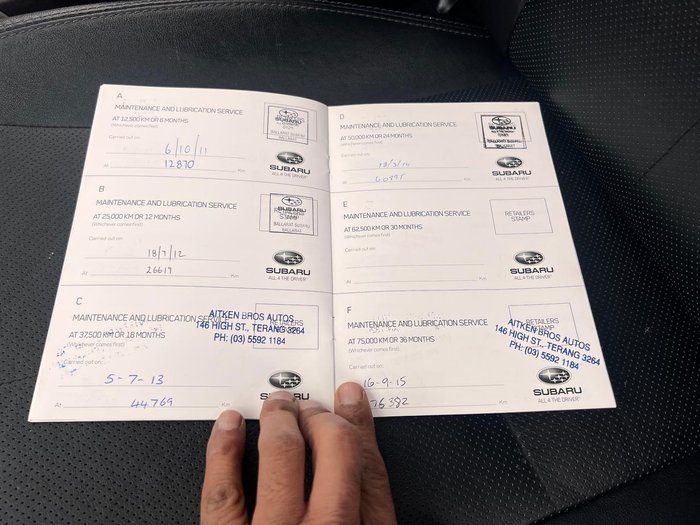 A
MAINTENANCE AND LUBRICATION SERVICE
AT 12,500 KM OR 6 MONTHS
(Whichever comes first)
Carried out on:
6/10/11
At 12870 Km
SUBARU
BALLARAT SUBARU
BALLARAT
SUBARU
ALL 4 THE DRIVER
B
MAINTENANCE AND LUBRICATION SERVICE
AT 25,000 KM OR 12 MONTHS
(Whichever comes first)
Carried out on:
18/7/12
At 26619 Km
SUBARU
STAMP
BALLARAT SUBARU
BALLARAT
SUBARU
ALL 4 THE DRIVER
C
MAINTENANCE AND LUBRICATION SERVICE
AT 37,500 KM OR 18 MONTHS
(Whichever comes first)
Carried out on:
5-7-13
At 44769
RETAILERS
AITKEN BROS AUTOS
146 HIGH ST., TERANG 3264
PH: (03) 5592 1184
SUBARU
D
MAINTENANCE AND LUBRICATION SERVICE
AT 50,000 KM OR 24 MONTHS
(Whichever comes first)
Carried out on:
At Km
SUBARU
BALLARAT SUBARU
BALLARAT
SUBARU
ALL 4 THE DRIVER
E
MAINTENANCE AND LUBRICATION SERVICE
AT 62,500 KM OR 30 MONTHS
(Whichever comes first)
Carried out on:
At Km
RETAILERS
STAMP
SUBARU
ALL 4 THE DRIVER
F
MAINTENANCE AND LUBRICATION SERVICE
AT 75,000 KM OR 36 MONTHS
(Whichever comes first)
Carried out on:
16-9-15
76382 Km
RETAILERS
STAMP
AITKEN BROS AUTOS
146 HIGH ST., TERANG 3264
PH: (03) 5592 1184
SUBARU
ALL 4 THE DRIVER